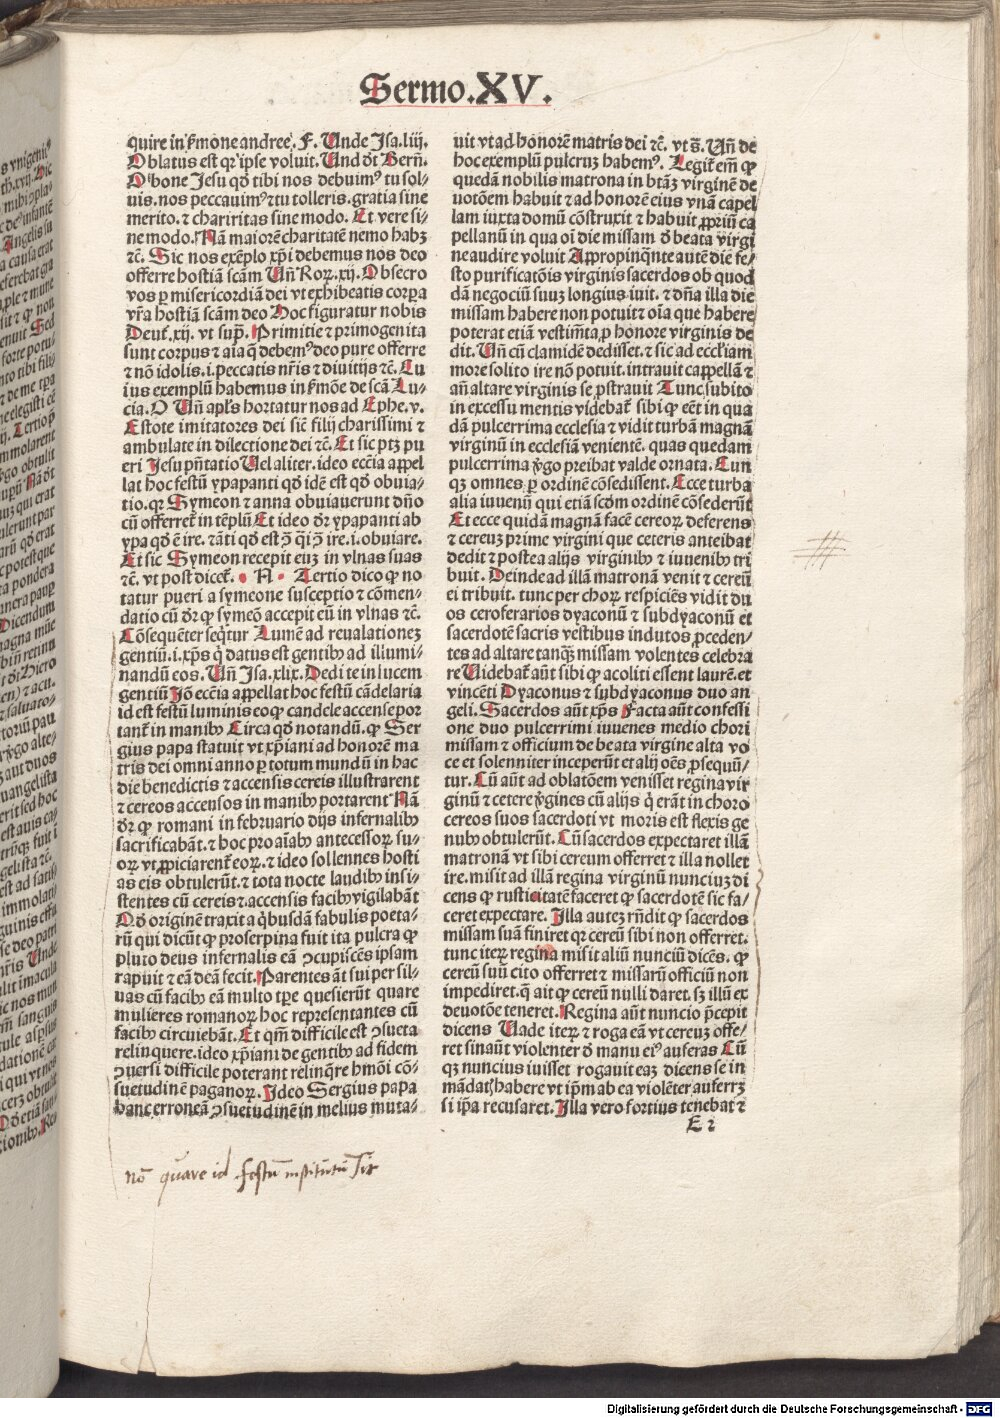 Sermo.XV.
quire in ẜmone andree. F. Unde Isa.liij.
Oblatus est qꝛ ipse voluit. Und dt Bern̄.
O bone Jesu qd tibi nos debuimꝰ tu sol-
uis. nos peccauimꝰ ⁊ tu tolleris. gratia sine
merito. ⁊ chariritas sine modo. Et vere si-
ne modo. Nā maiorē charitatē nemo habꝫ
ꝛc̄. Sic nos exēplo xp̄i debemus nos deo
offerre hostiā scām Un̄ Roꝝ.xij. Obsecro
vos ꝑ misericordiā dei vt exhibeatis corꝑa
vr̄a hostiā scām deo Hoc figuratur nobis
Deut̄.xij. vt supͣ. Primitie ⁊ primogenita
sunt corpus ⁊ aīa q̄ debemꝰ deo pure offerre
⁊ nō idolis. i. peccatis nr̄is ⁊ diuitijs ꝛc̄. Cu
ius exemplū habemus in ẜmōe de scā Lu-
cia. O Un̄ apl̄s hortatur nos ad Ephe.v.
Estote imitatores dei sic̄ filij charissimi ⁊
ambulate in dilectione dei ꝛc̄. Et sic ptꝫ pu
eri Jesu pn̄tatio Uel aliter. ideo ecc̄ia appel
lat hoc festū ypapanti qd idē est qd obuia-
tio. qꝛ Symeon ⁊ anna obuiauerunt dn̄o
cū offerret̄ in tēplū Et ideo dr̄ ypapanti ab
ypa qd ē ire. ⁊ āti qd est ↄ̄ q̄i ↄ̄ ire. i. obuiare.
Et sic Symeon recepit euꝫ in vlnas suas
ꝛc̄. vt post dicet̄. • N • Tertio dico ꝙ no
tatur pueri a symeone susceptio ⁊ cōmen-
datio cū dr̄ ꝙ symeō accepit eū in vlnas ꝛc̄.
Cōsequēter seq̄tur Lumē ad reualationeꝫ
gentiū. i. xp̄s q̇ datus est gentibꝰ ad illumi-
nandū eos. Un̄ Isa.xlix. Dedi te in lucem
gentiū Iō ecc̄ia appellat hoc festū cādelaria
id est festū luminis eo ꝙ candele accense por
tant̄ in manibꝰ Circa qd notandū. ꝙ Ser
gius papa statuit vt xp̄iani ad honorē ma
tris dei omni anno ꝑ totum mundū in hac
die benedictis ⁊ accensis cereis illustrarent
⁊ cereos accensos in manibꝰ portarent Nā
dr̄ ꝙ romani in februario dijs infernalibꝰ
sacrificabāt. ⁊ hoc pro aīabꝰ antecessoꝝ su-
oꝝ vt ꝓpiciarent̄ eoꝝ. ⁊ ideo sollennes hosti
as eis obtulerūt. ⁊ tota nocte laudibꝰ insi-
stentes cū cereis ⁊ accensis facibꝰ vigilabāt
Qd originē traxit a q̇busdā fabulis poeta-
rū qui dicūt ꝙ proserpina fuit ita pulcra ꝙ
pluto deus infernalis eā ↄcupiscēs ipsam
rapuit ⁊ eā deā fecit. Parentes āt sui per sil-
uas cū facibꝰ eā multo tꝑe quesierūt quare
mulieres romanoꝝ hoc representantes cū
facibꝰ circuiebāt. Et qm̄ difficile est ↄsueta
relinquere. ideo xp̄iani de gentibꝰ ad fidem
ↄuersi difficile poterant relinq̄re hmōi cō-
suetudinē paganoꝝ. Ideo Sergius papa
hanc erroneā ↄsuetudinē in melius muta-
uit vt ad honorē matris dei ꝛc̄. vt s̄. Un̄ de
hoc exemplū pulcruꝫ habemꝰ. Legit̄ em̄ ꝙ
quedā nobilis matrona in btāꝫ virginē de
uotōem habuit ⁊ ad honorē eius vnā capel
lam iuxta domū cōstruxit ⁊ habuit ꝓpriū ca
pellanū in qua oī die missam ď beata virgi
ne audire voluit Appropinq̄nte autē die fe-
sto purificatōis virginis sacerdos ob quod
dā negociū suuꝫ longius iuit. ⁊ dn̄a illa die
missam habere non potuit ⁊ oīa que habere
poterat etiā vestim̄ta ꝓ honore virginis de
dit. Un̄ cū clamidē dedisset. ⁊ sic ad eccl̄iam
more solito ire nō potuit. intrauit cappellā ⁊
an̄ altare virginis se ꝓstrauit Tunc subito
in excessu mentis videbat̄ sibi ꝙ eēt in qua
dā pulcerrima ecclesia ⁊ vidit turbā magnā
virginū in ecclesiā venientē. quas quedam
pulcerrima v̇go preibat valde ornata. Cun
qꝫ omnes ꝑ ordinē cōsedissent. Ecce turba
alia iuuenū qui etiā scdm ordinē cōsederūt
Et ecce quidā magnā facē cereoꝝ deferens
⁊ cereuꝫ prime virgini que ceteris anteibat
dedit ⁊ postea alijs virginibꝰ ⁊ iuuenibꝰ tri
buit. Deinde ad illā matronā venit ⁊ cereū
ei tribuit. tunc per choꝝ respiciēs vidit du
os ceroferarios dyaconū ⁊ subdyaconū et
sacerdotē sacris vestibus indutos ꝓceden-
tes ad altare tanqꝫ missam volentes celebra
re Uidebat̄ aūt sibi ꝙ acoliti essent laurē. et
vincēti Dyaconus ⁊ subdyaconus duo an
geli. Sacerdos aūt xp̄s Facta aūt confessi
one duo pulcerrimi iuuenes medio chori
missam ⁊ officium de beata virgine alta vo
ce et solenniter inceperūt et alij oēs ꝓsequū-
tur. Cū aūt ad oblatōem venisset regina vir
ginū ⁊ cetere v̇gines cū alijs q̇ erāt in choro
cereos suos sacerdoti vt moris est flexis ge
nubꝰ obtulerūt. Cū sacerdos expectaret illā
matronā vt sibi cereum offerret ⁊ illa nollet
ire. misit ad illā regina virginū nunciuꝫ di
cens ꝙ rusticitatē faceret ꝙ sacerdotē sic fa-
ceret expectare. Illa auteꝫ rn̄dit ꝙ sacerdos
missam suā finiret qꝛ cereū sibi non offerret.
tunc iteꝝ regina misit aliū nunciū dicēs. ꝙ
cereū suū cito offerret ⁊ missarū officiū non
impediret. q̄ ait ꝙ cereū nulli daret. sꝫ illū ex
deuotōe teneret. Regina aūt nuncio p̄cepit
dicens Uade iteꝝ ⁊ roga eā vt cereuꝫ offe-
ret sin aūt violenter ď manu eiꝰ auferas Cū
qꝫ nuncius iuisset rogauit eaꝫ dicens se in
mādatꝭ habere vt ip̄m ab ea violēter auferrꝫ
si ip̄a recusaret. Illa vero fortius tenebat ⁊
E 2
nō quare id festū institutū sit
Digitalisierung gefördert durch die Deutsche Forschungsgemeinschaft - DFG